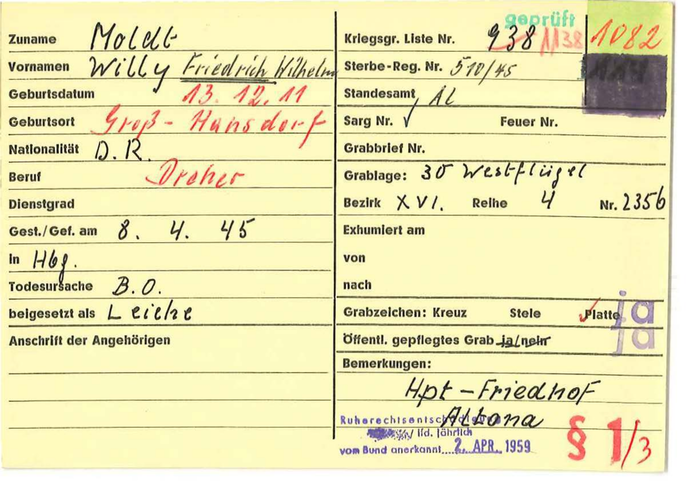 geprüft
Zuname Moldt
Vornamen Willy Friedrich Wilhelm
Geburtsdatum 13. 12. 11
Geburtsort Groß-Hansdorf
Nationalität D.R.
Beruf Dreher
Dienstgrad
Gest./Gef. am 8. 4. 45
in Hbg.
Todesursache B.O.
beigesetzt als Leiche
Anschrift der Angehörigen
Kriegsgr. Liste Nr. 938 1138 1082
Sterbe-Reg. Nr. 510/45
Standesamt AL
Sarg Nr. Feuer Nr.
Grabbrief Nr.
Grablage: 30 Westflügel
Bezirk XVI. Reihe 4 Nr. 2356
Exhumiert am
von
nach
Grabzeichen: Kreuz Stele Platte ja
Öffentl. gepflegtes Grab ja/nein ja
Bemerkungen:
Hpt-Friedhof
Altona
Ruherechtsentschädigung
lfd. jährlich
vom Bund anerkannt 2. APR. 1959
§ 1/3